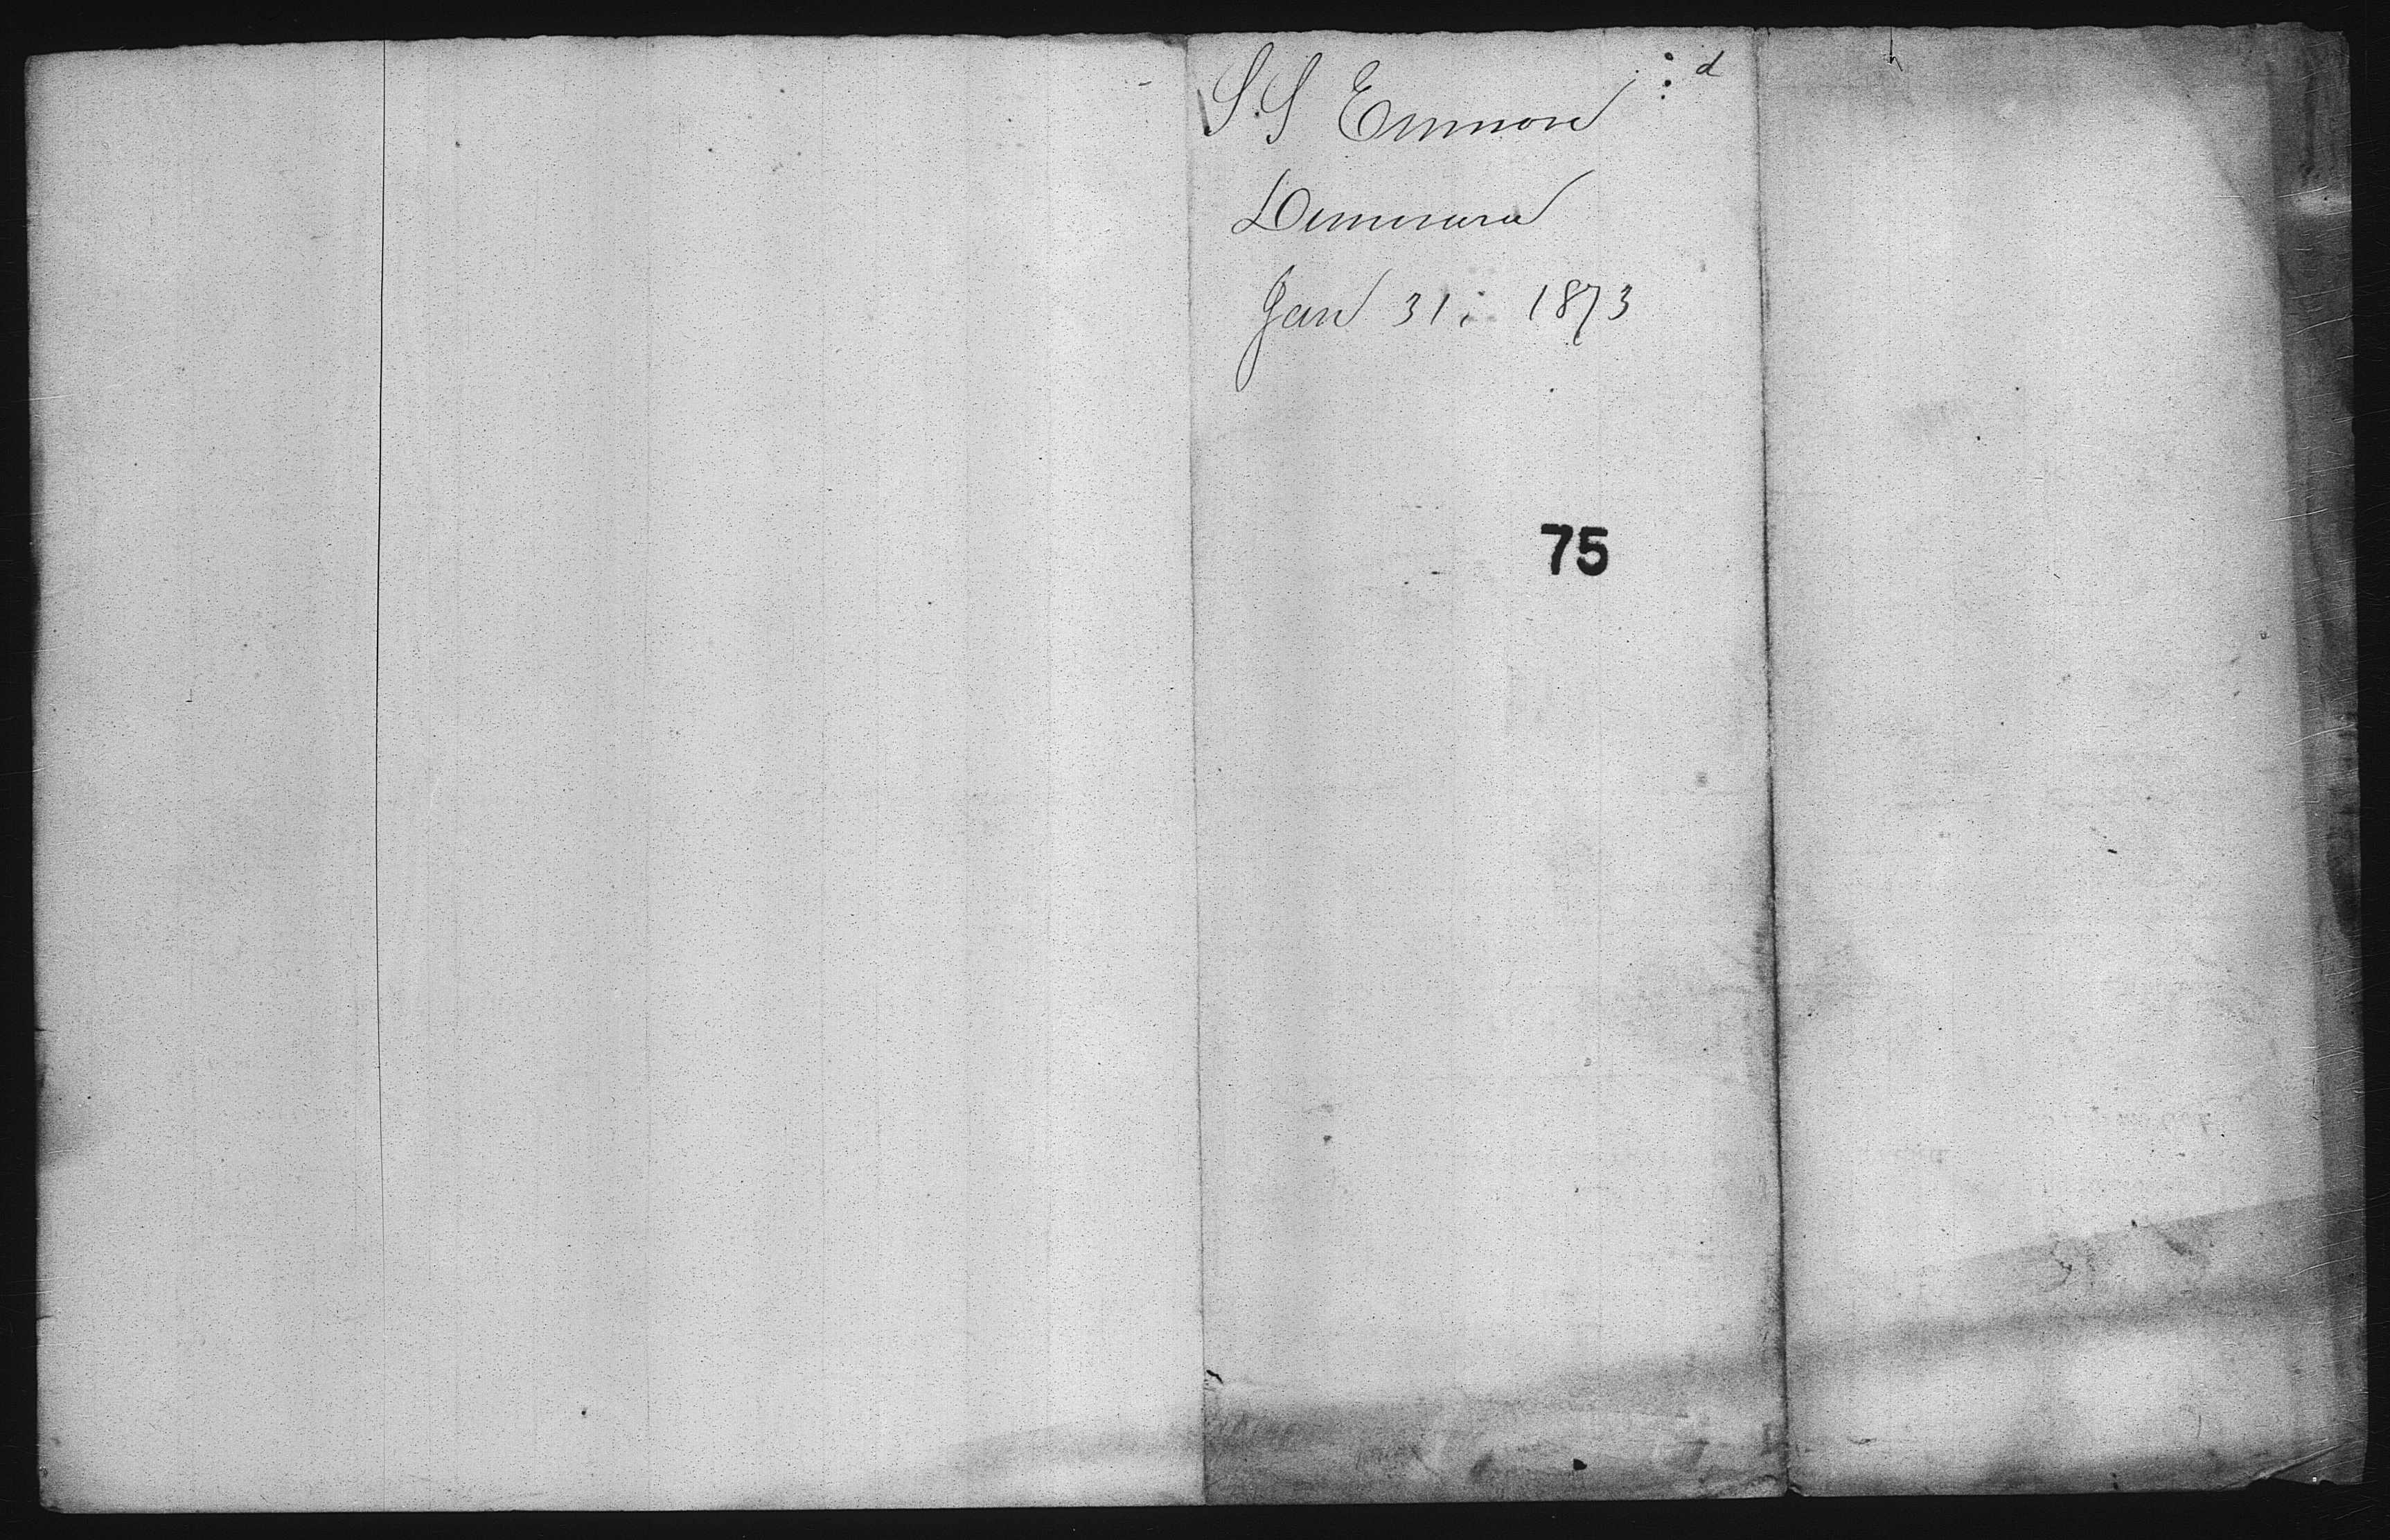 S.S Ennmore
Demerara
Jan 31. 1873
75